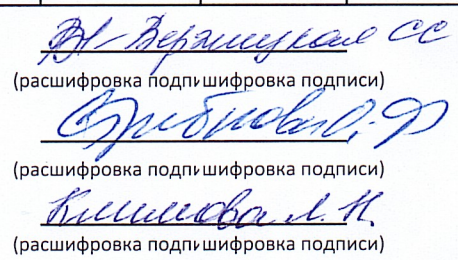 Вержицкая СС
(расшифровка подпишифровка подписи)
(расшифровка подпишифровка подписи)
Климова Л.Н.
(расшифровка подпишифровка подписи)